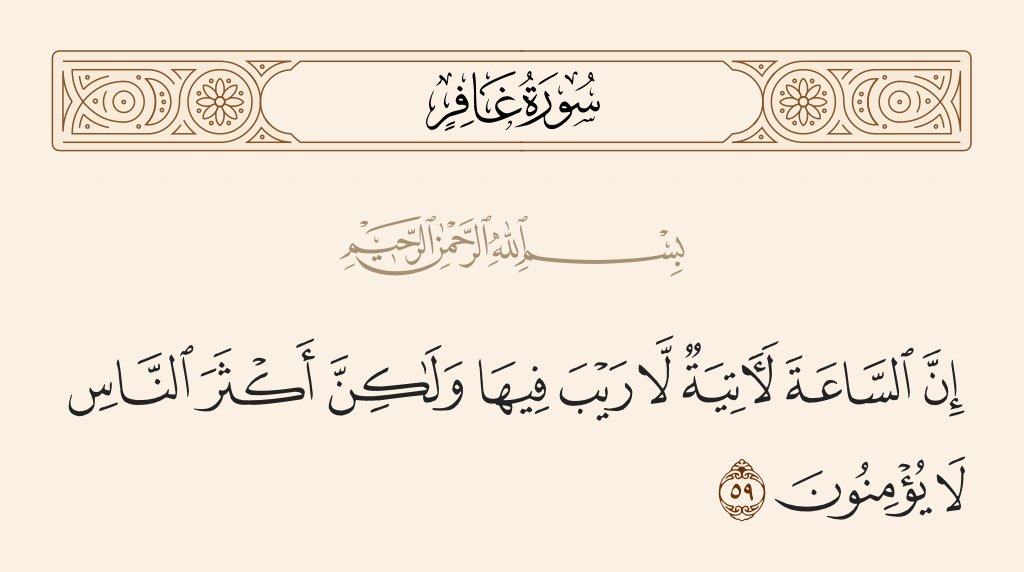 سُورَةُ غَافِرٍ
بِسْمِ ٱللَّهِ ٱلرَّحْمَٰنِ ٱلرَّحِيمِ
إِنَّ ٱلسَّاعَةَ لَـَٔاتِيَةٌ لَّا رَيْبَ فِيهَا وَلَٰكِنَّ أَكْثَرَ ٱلنَّاسِ
لَا يُؤْمِنُونَ ٥٩